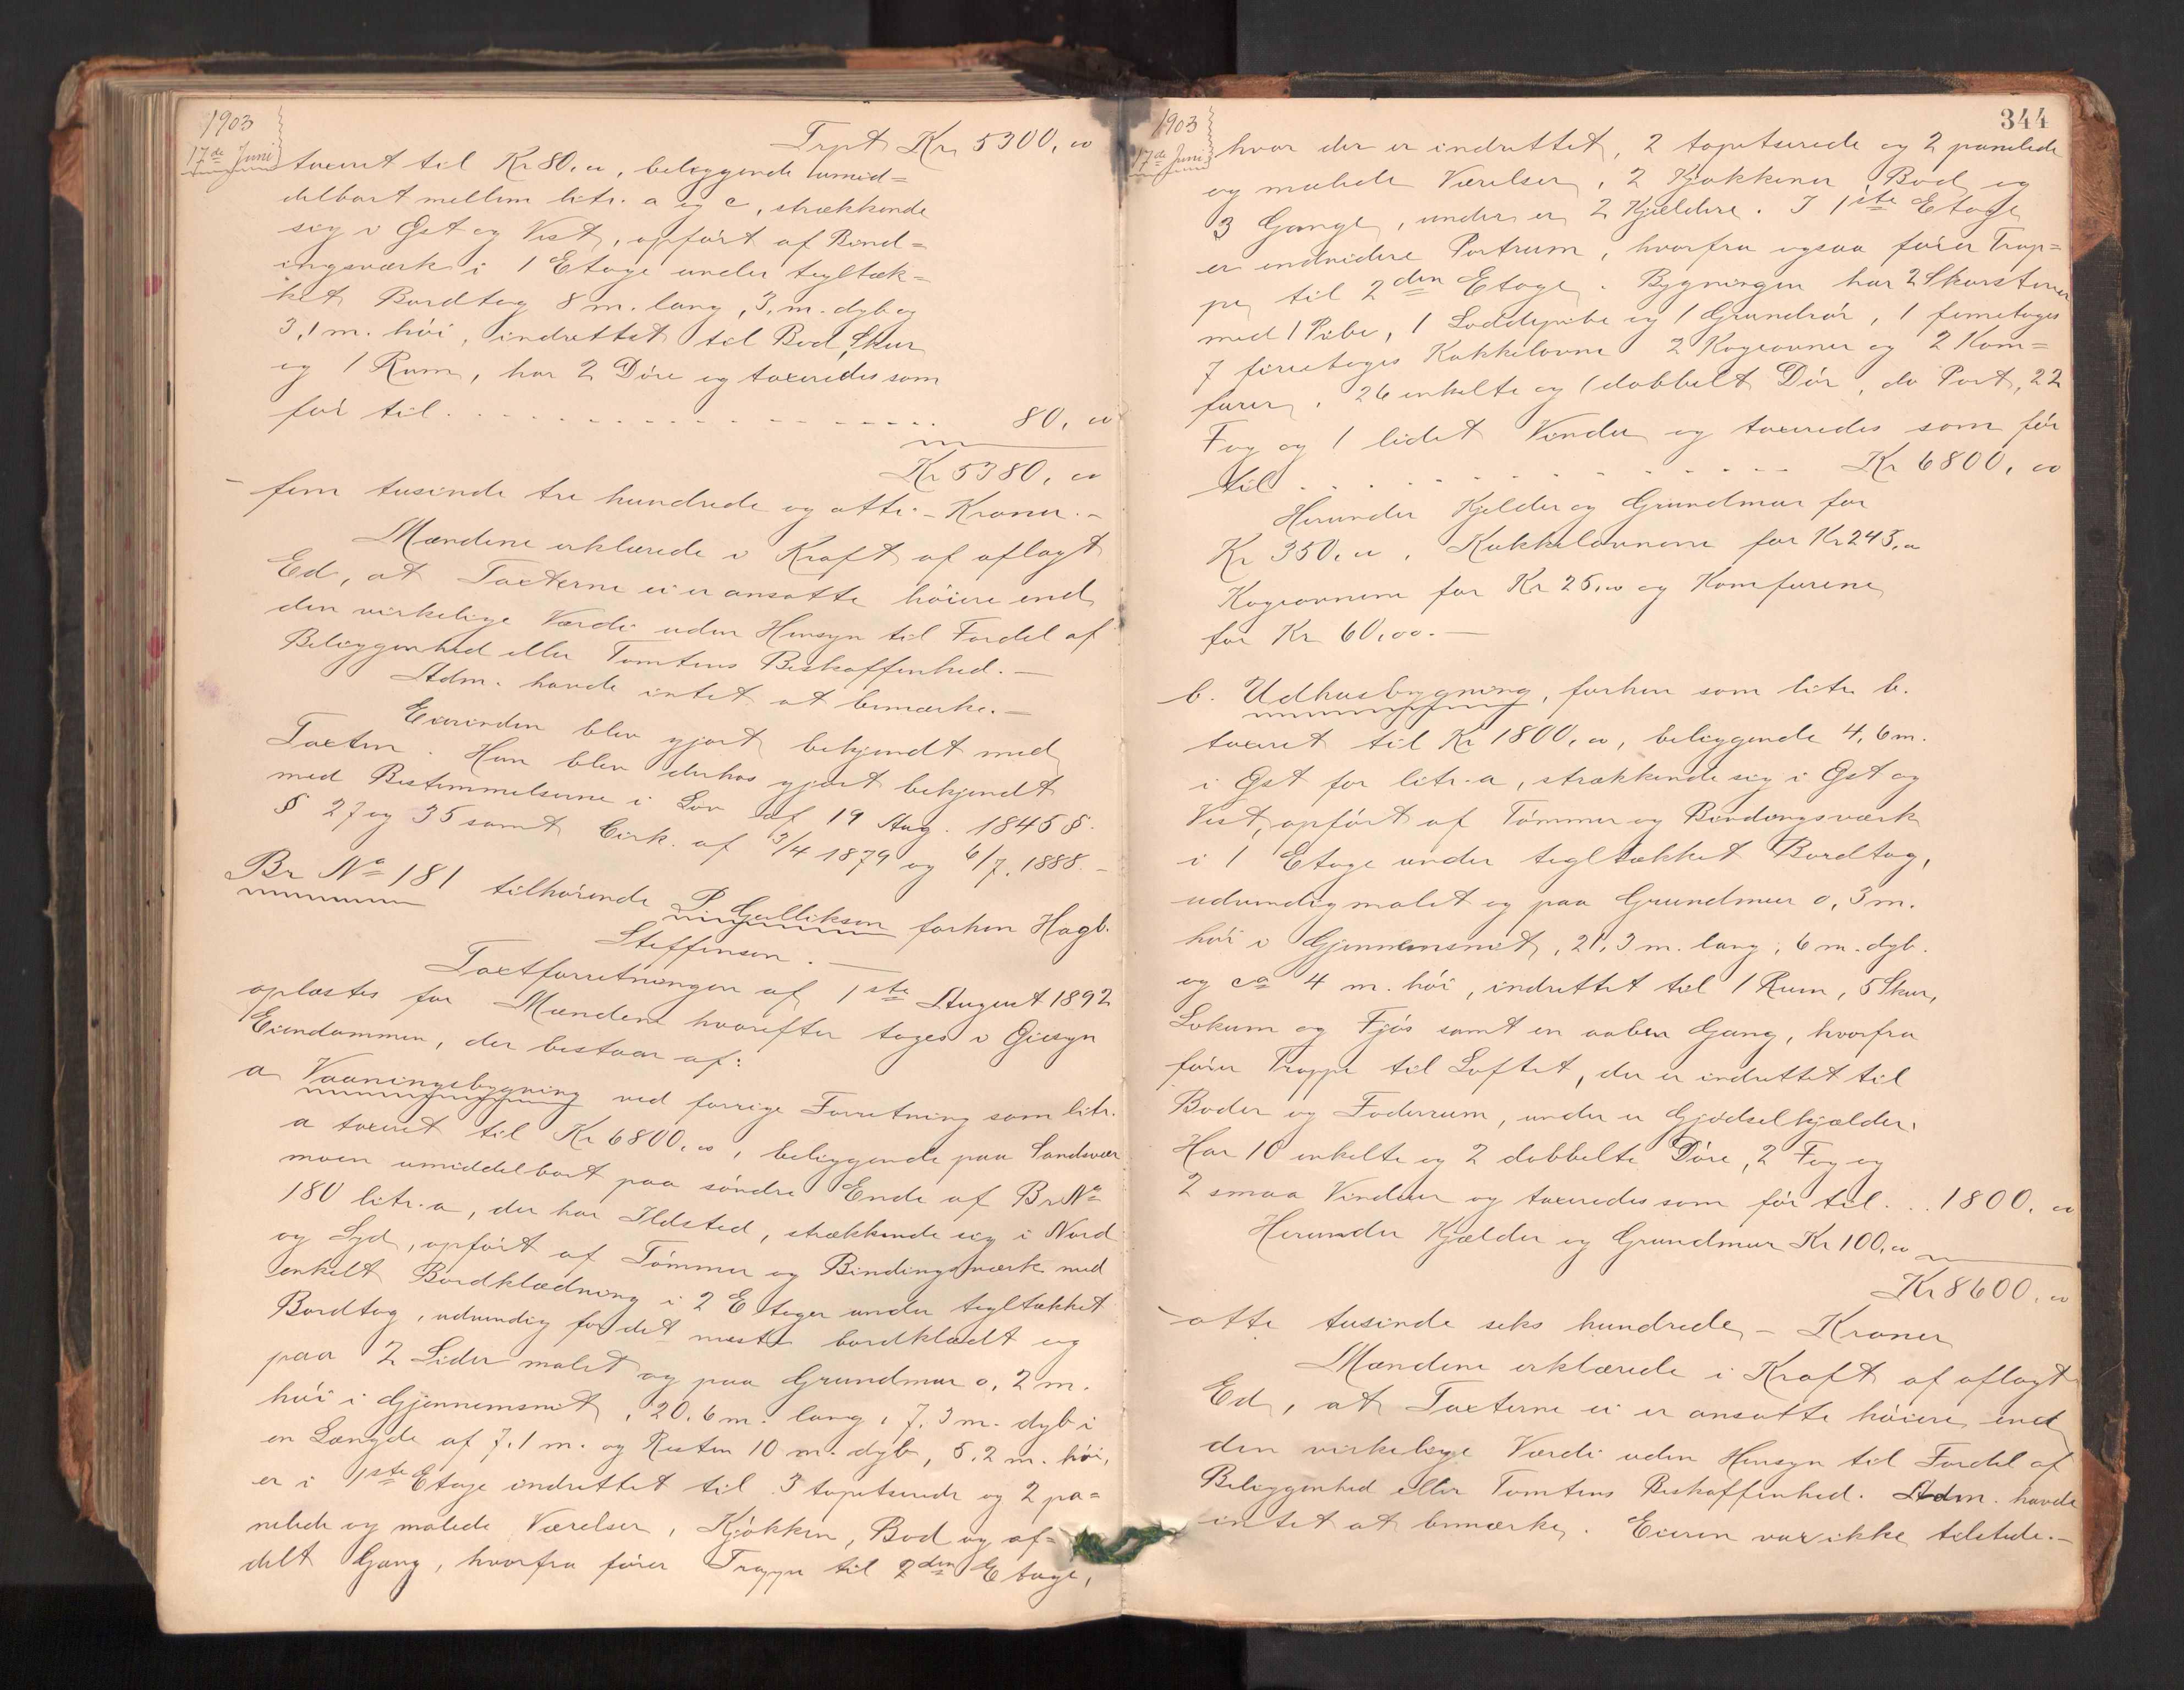 1903
17de Juni
Trpt Kr 5300,00
taxeret til Kr 80,00, beliggende umid=
delbart mellem litr. a og c, strækkende
sig i Øst og Vest, opført af Bind=
ingsværk i 1 Etage under tegltæk=
ket Bordtag 8 m. lang, 3, m. dyb og
3,1 m. høi, indrettet til Bod, Skur
og 1 Rum, har 2 Døre og taxeredes som
før til . . . . . . 80,00
Kr 5380,00
- fem tusinde tre hundrede og otti - Kroner. -
Mændene erklærede i Kraft af aflagt
Ed, at Taxterne ei er ansatte høiere end
den virkelige Værdi uden Hensyn til Fordel af
Beliggenhed eller Tomtens Beskaffenhed. -
Adm. havde intet at bemærke. -
Eierinden blev gjort bekjendt med
Taxten. Hun blev derhos gjort bekjendt
med Bestemmelserne i Lov af 19 Aug. 1845 §.
§ 27 og 35 samt Cirk. af 3/4 1879 og 6/7. 1888. -
Br No 181 tilhørende P. Gullikson forhen Hagb.
Steffensen. -
Taxtforretningen af 1ste August 1892
oplæstes for Mændene hvorefter toges i Øiesyn
Eiendommen, der bestaar af:
a Vaaningsbygning ved forrige Forretning som litr.
a taxeret til Kr 6800,00, beliggende paa Sandsvær
moen umiddelbart paa søndre Ende af Br No
180 litr. a, der har Ildsted, strækkende sig i Nord
og Syd, opført af Tømmer og Bindingsværk med
enkelt Bordklædning i 2 Etager under tegltækket
Bordtag, udvendig for det meste bordklædt og
paa 2 Sider malet og paa Grundmur 0,2 m.
høi i Gjennemsnit, 20,6 m. lang, 7,3 m. dyb i
en Længde af 7,1 m. og Resten 10 m. dyb, 5,2 m. høi,
er i 1ste Etage indrettet til 3 tapetserede og 2 pa=
nelede og malede Værelser, Kjøkken, Bod og af=
delt Gang, hvorfra fører Trappe til 2den Etage,
344
1903
17de Juni
hvor der er indrettet, 2 tapetserede og 2 panelede
og malede Værelser, 2 Kjøkkener, Bod og
3 Gange, under er 2 Kjældere. I 1ste Etage
er endvidere Portrum, hvorfra ogsaa fører Trap=
pe til 2den Etage. Bygningen har 2 Skorstener
med 1 Pibe, 1 Loddepibe og 1 Grundrør, 1 femetages
7 firretages Kakkelovne 2 Kogeovner og 2 Kom=
furer, 26 enkelte og 1 dobbelt Dør, do Port, 22
Fag og 1 lidet Vindu og taxeredes som før
til . . . . . . Kr 6800,00
Herunder Kjelder og Grundmur for
Kr 350,00, Kakkelovnene for Kr 245,00
Kogeovnene for Kr 25,00 og Komfurene
for Kr 60,00. -
b. Udhusbygning, forhen som litr b.
taxeret til Kr 1800,00, beliggende 4,6 m.
i Øst for litr. a, strækkende sig i Øst og
Vest, opført af Tømmer og Bindingsværk
i 1 Etage under tegltækket Bordtag,
udvendig malet og paa Grundmur 0,3 m.
høi i Gjennemsnit, 21,3 m. lang, 6 m. dyb.
og ca 4 m. høi, indrettet til 1 Rum, 5 Skur,
Lokum og Fjøs samt en aaben Gang, hvorfra
fører Trappe til Loftet, der er indrettet til
Boder og Foderrum, under er Gjødselkjælder.
Har 10 enkelte og 2 dobbelte Døre, 2 Fag og
2 smaa Vinduer og taxeredes som før til . . 1800,00
Herunder Kjælder og Grundmur Kr 100,00
Kr 8600,00
- otte tusinde seks hundrede, - Kroner
Mændene erklærede i Kraft af aflagt
Ed, at Taxterne ei er ansatte høiere end
den virkelige Værdi uden Hensyn til Fordel af
Beliggenhed eller Tomtens Beskaffenhed. Adm. havde
intet at bemærke. Eieren var ikke tilstede. -